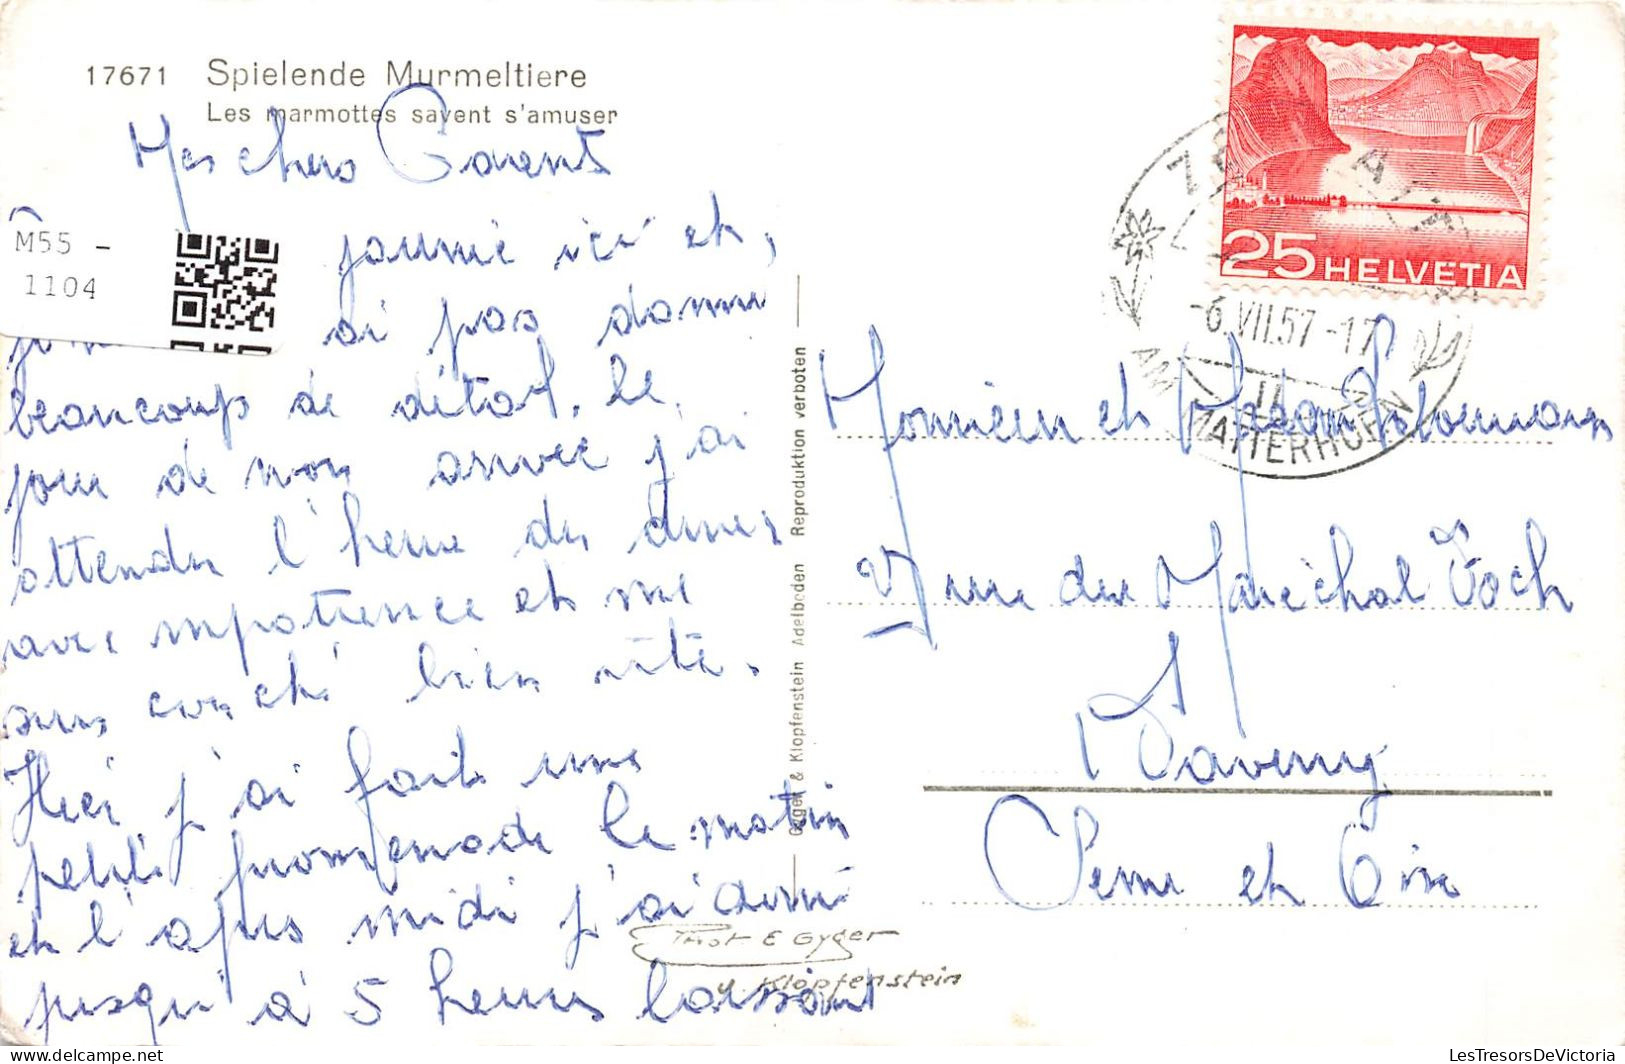 17671 Spielende Murmeltiere
Les marmottes savent s'amuser
Mes chers Parents
M55 -
1104
journé ici et,
ai pas donné
beaucoup de détail. Le
jour de mon arrivée j'ai
attendu l'heure du diner
avec impatience et me
suis couché bien vite.
Hier j'ai fait une
petite promenade le matin
et l'après midi j'ai dormi
jusqu'à 5 heures laissant
Phot. E Gyger
u. Klopfenstein
Gyger & Klopfenstein Adelboden Reproduktion verboten
25 HELVETIA
ZERMATT
-6.VII.57-17
AM MATTERHORN
Monsieur et
rue du Maréchal Foch
Taverny
Seine et Oise
LesTresorsDeVictoria.com